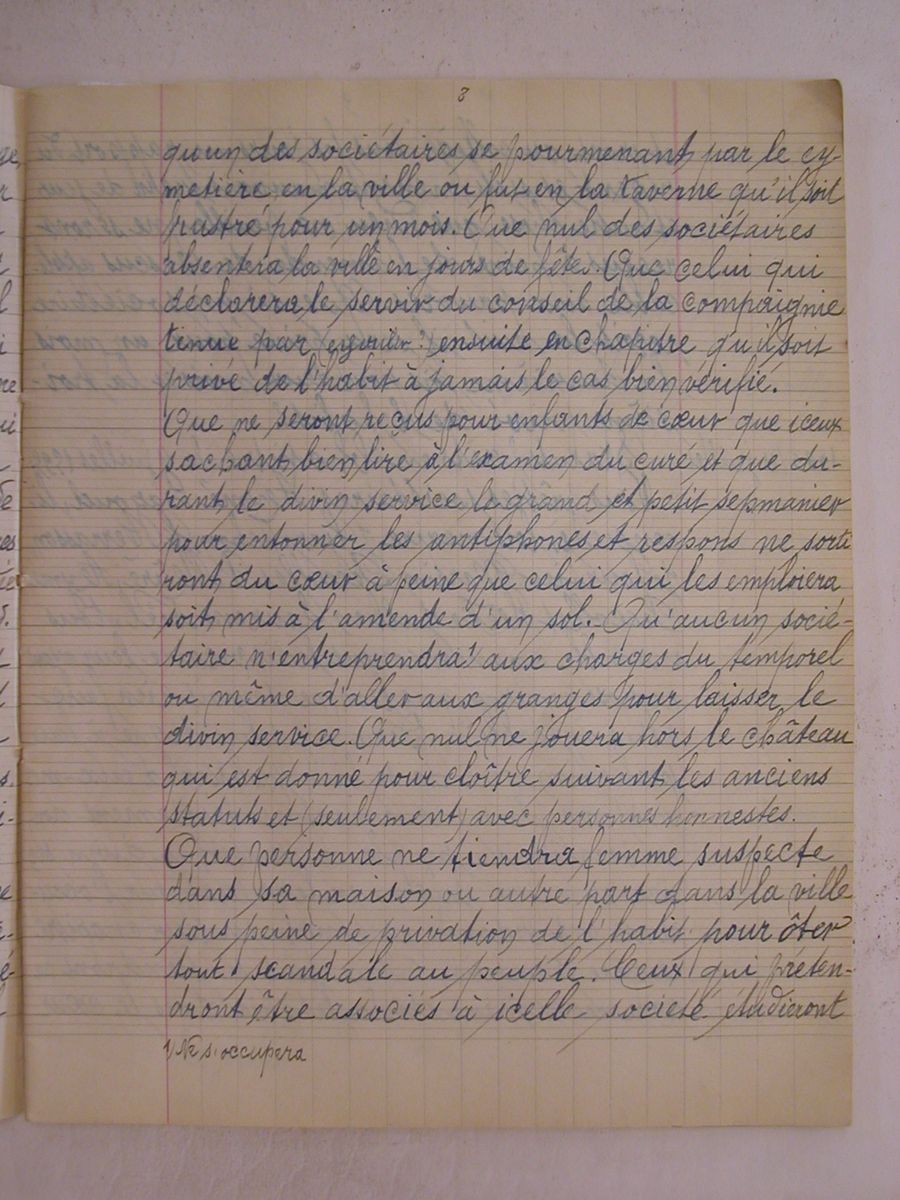 8
qu'un des sociétaires se pourmenant par le cy-
metière en la ville ou fut en la taverne qu'il soit
frustré pour un mois. Que nul des sociétaires
absentera la ville en jours de fête. Que celui qui
déclarera le servir du conseil de la compaignie
tenue par (?) ensuite en chapitre qu'il soit
privé de l'habit à jamais le cas bien vérifié.
Que ne seront reçus pour enfants de cœur que iceux
sachant bien lire à l'examen du curé et que du-
rant le divin service le grand et petit sepmanier
pour entonner les antiphones et respons ne sorti
ront du cœur à peine que celui qui les emploiera
soit mis à l'amende d'un sol. Qu'aucun socié-
taire n'entreprendra 1) aux charges du temporel
ou même d'aller aux granges pour laisser le
divin service. Que nul ne jouera hors le château
qui est donné pour cloître suivant les anciens
statuts et (seulement) avec personnes honnestes.
Que personne ne tiendra femme suspecte
dans sa maison ou autre part dans la ville
sous peine de privation de l'habit pour ôter
tout scandale au peuple. Ceux qui préten-
dront être associés à icelle société étudieront
1) Ne s'occupera